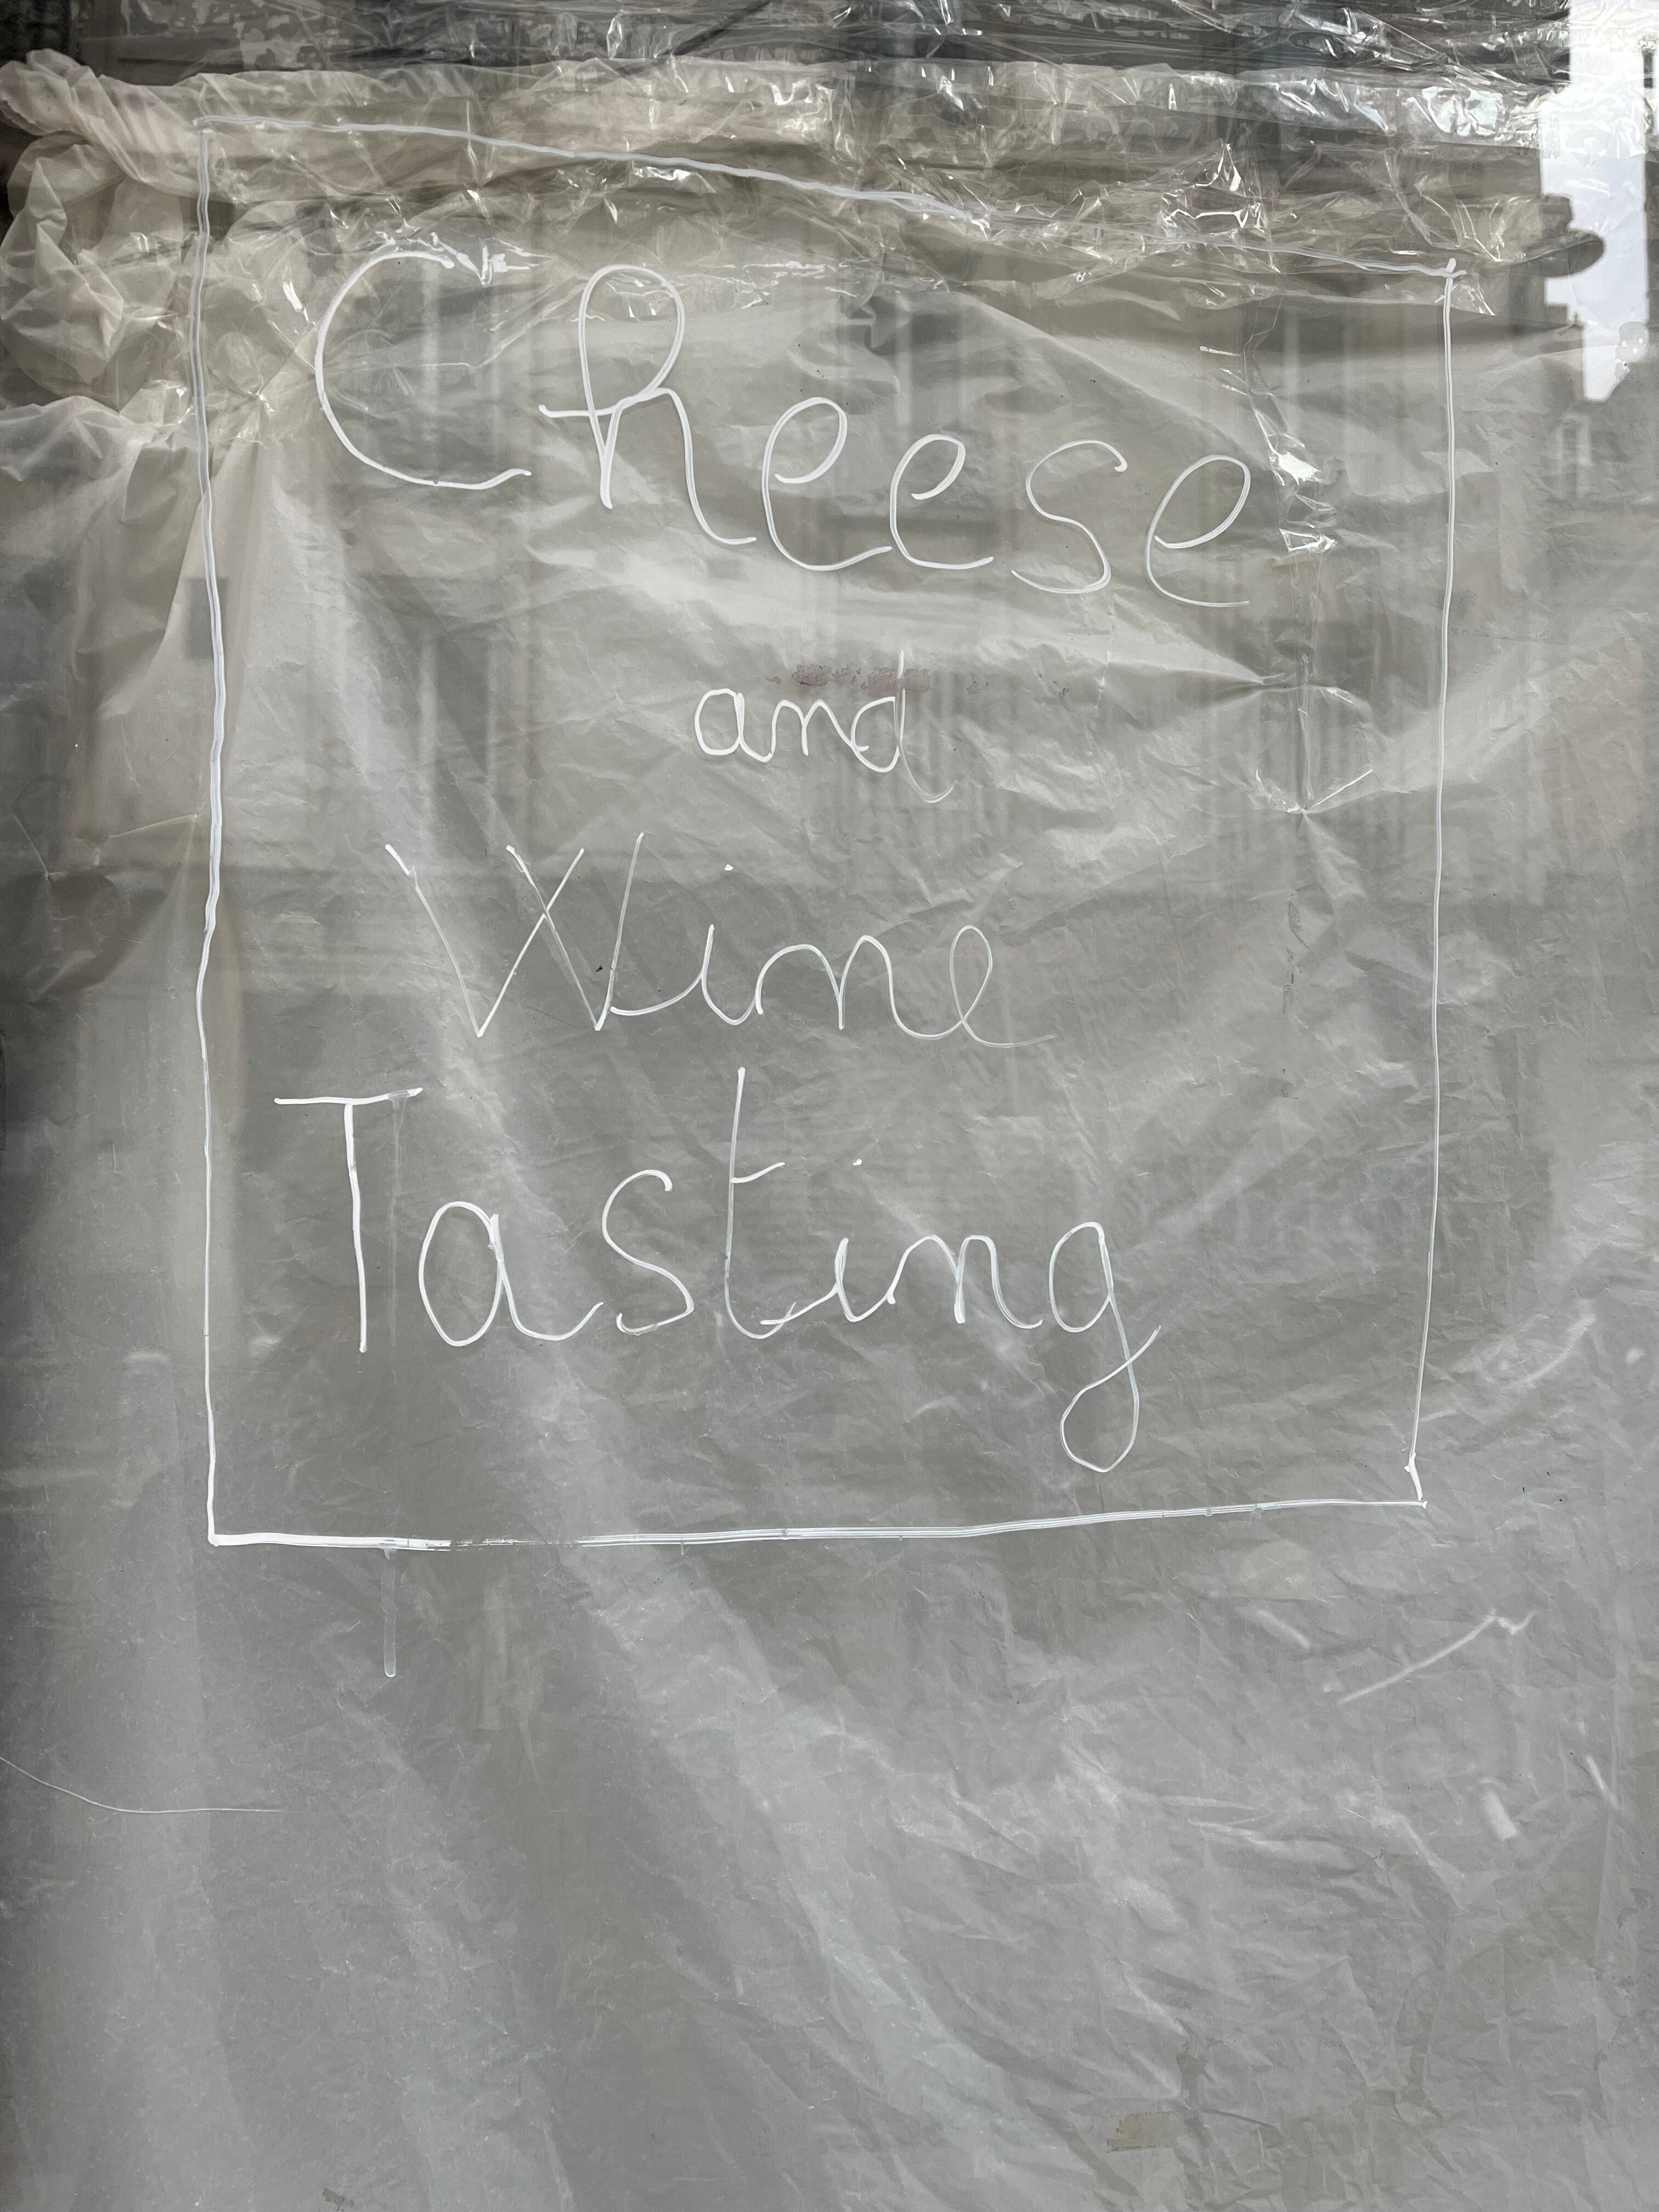 Cheese
and
Wine
Tasting